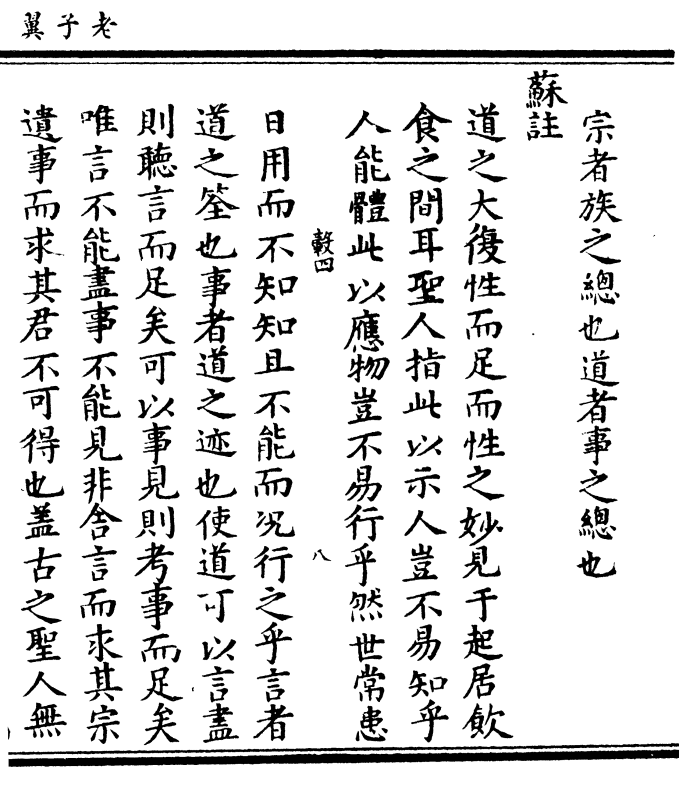 老子翼
宗者族之總也道者事之總也
蘇註
道之大復性而足而性之妙見于起居飲
食之間耳聖人指此以示人豈不易知乎
人能體此以應物豈不易行乎然世常患
轂四
八
日用而不知知且不能而况行之乎言者
道之筌也事者道之迹也使道可以言盡
則聽言而足矣可以事見則考事而足矣
唯言不能盡事不能見非舍言而求其宗
遺事而求其君不可得也盖古之聖人無